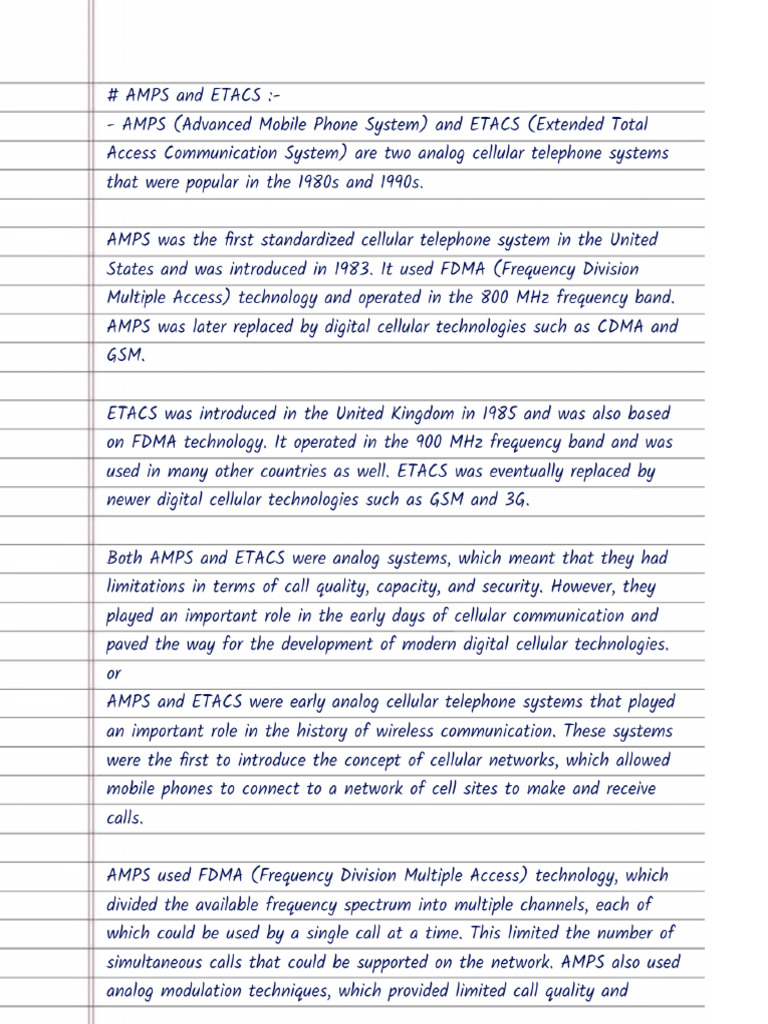 # AMPS and ETACS :-
- AMPS (Advanced Mobile Phone System) and ETACS (Extended Total
Access Communication System) are two analog cellular telephone systems
that were popular in the 1980s and 1990s.
AMPS was the first standardized cellular telephone system in the United
States and was introduced in 1983. It used FDMA (Frequency Division
Multiple Access) technology and operated in the 800 MHz frequency band.
AMPS was later replaced by digital cellular technologies such as CDMA and
GSM.
ETACS was introduced in the United Kingdom in 1985 and was also based
on FDMA technology. It operated in the 900 MHz frequency band and was
used in many other countries as well. ETACS was eventually replaced by
newer digital cellular technologies such as GSM and 3G.
Both AMPS and ETACS were analog systems, which meant that they had
limitations in terms of call quality, capacity, and security. However, they
played an important role in the early days of cellular communication and
paved the way for the development of modern digital cellular technologies.
or
AMPS and ETACS were early analog cellular telephone systems that played
an important role in the history of wireless communication. These systems
were the first to introduce the concept of cellular networks, which allowed
mobile phones to connect to a network of cell sites to make and receive
calls.
AMPS used FDMA (Frequency Division Multiple Access) technology, which
divided the available frequency spectrum into multiple channels, each of
which could be used by a single call at a time. This limited the number of
simultaneous calls that could be supported on the network. AMPS also used
analog modulation techniques, which provided limited call quality and